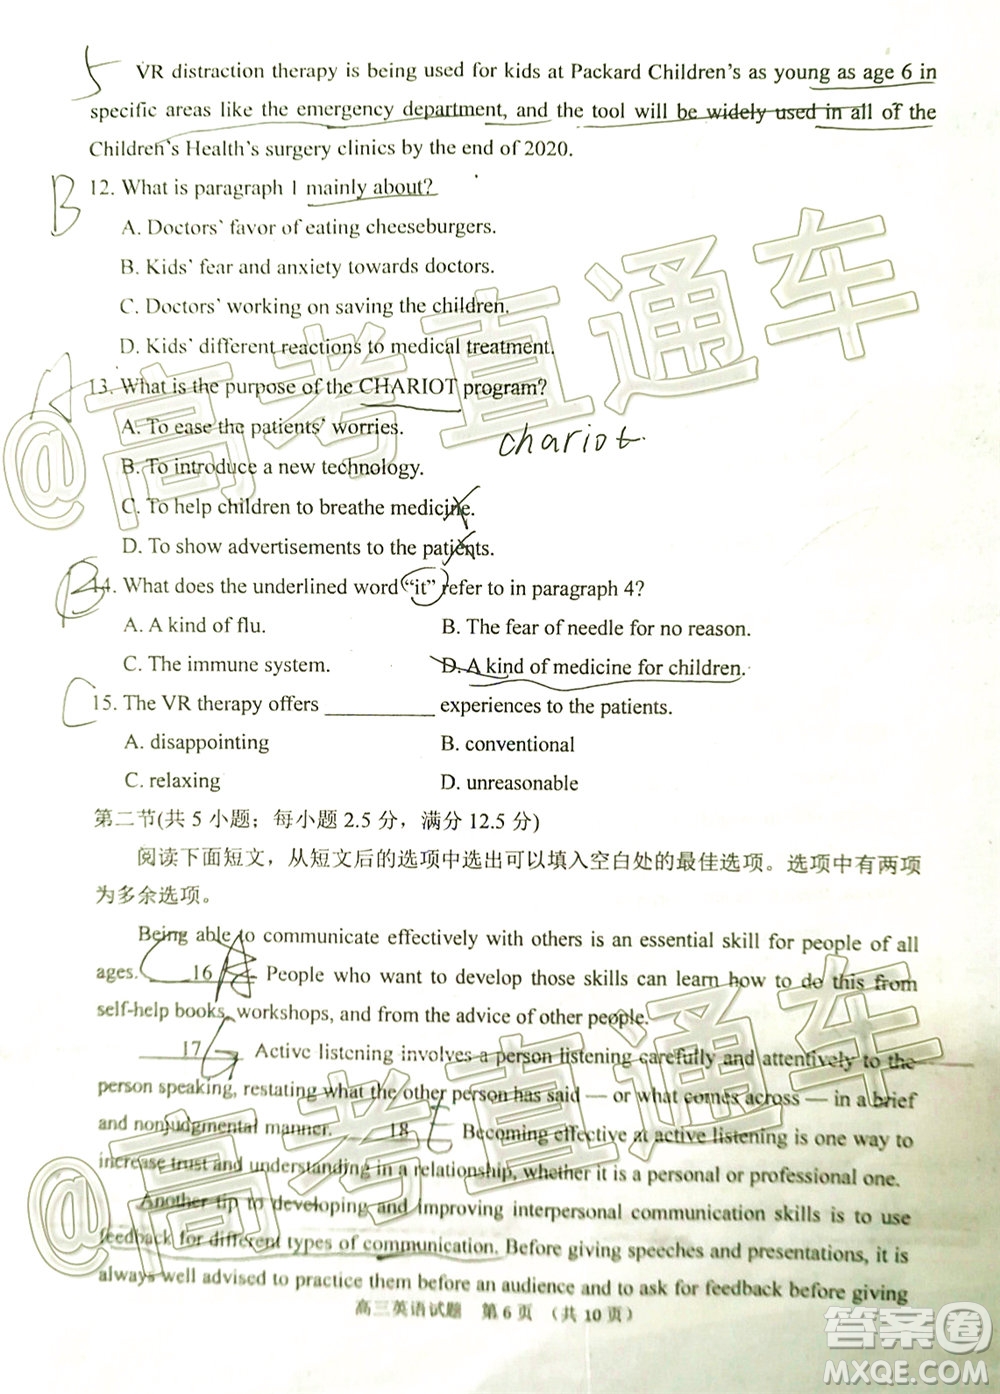 5 VR distraction therapy is being used for kids at Packard Children's as young as age 6 in
specific areas like the emergency department, and the tool will be widely used in all of the
Children's Health's surgery clinics by the end of 2020.
B 12. What is paragraph 1 mainly about?
A. Doctors' favor of eating cheeseburgers.
B. Kids' fear and anxiety towards doctors.
C. Doctors' working on saving the children.
D. Kids' different reactions to medical treatment.
A 13. What is the purpose of the CHARIOT program?
A. To ease the patients' worries.
chariot.
B. To introduce a new technology.
C. To help children to breathe medicine.
D. To show advertisements to the patients.
B 14. What does the underlined word "it" refer to in paragraph 4?
A. A kind of flu. B. The fear of needle for no reason.
C. The immune system. D. A kind of medicine for children.
C 15. The VR therapy offers __________ experiences to the patients.
A. disappointing B. conventional
C. relaxing D. unreasonable
第二节(共 5 小题；每小题 2.5 分，满分 12.5 分)
阅读下面短文，从短文后的选项中选出可以填入空白处的最佳选项。选项中有两项
为多余选项。
Being able to communicate effectively with others is an essential skill for people of all
ages. 16 People who want to develop those skills can learn how to do this from
self-help books, workshops, and from the advice of other people.
17 Active listening involves a person listening carefully and attentively to the
person speaking, restating what the other person has said — or what comes across — in a brief
and nonjudgmental manner. 18 Becoming effective at active listening is one way to
increase trust and understanding in a relationship, whether it is a personal or professional one.
Another tip to developing and improving interpersonal communication skills is to use
feedback for different types of communication. Before giving speeches and presentations, it is
always well advised to practice them before an audience and to ask for feedback before giving
高三英语试题 第 6 页 （共 10 页）
@高考直通车
@高考直通车
答案圈
MXQE.COM